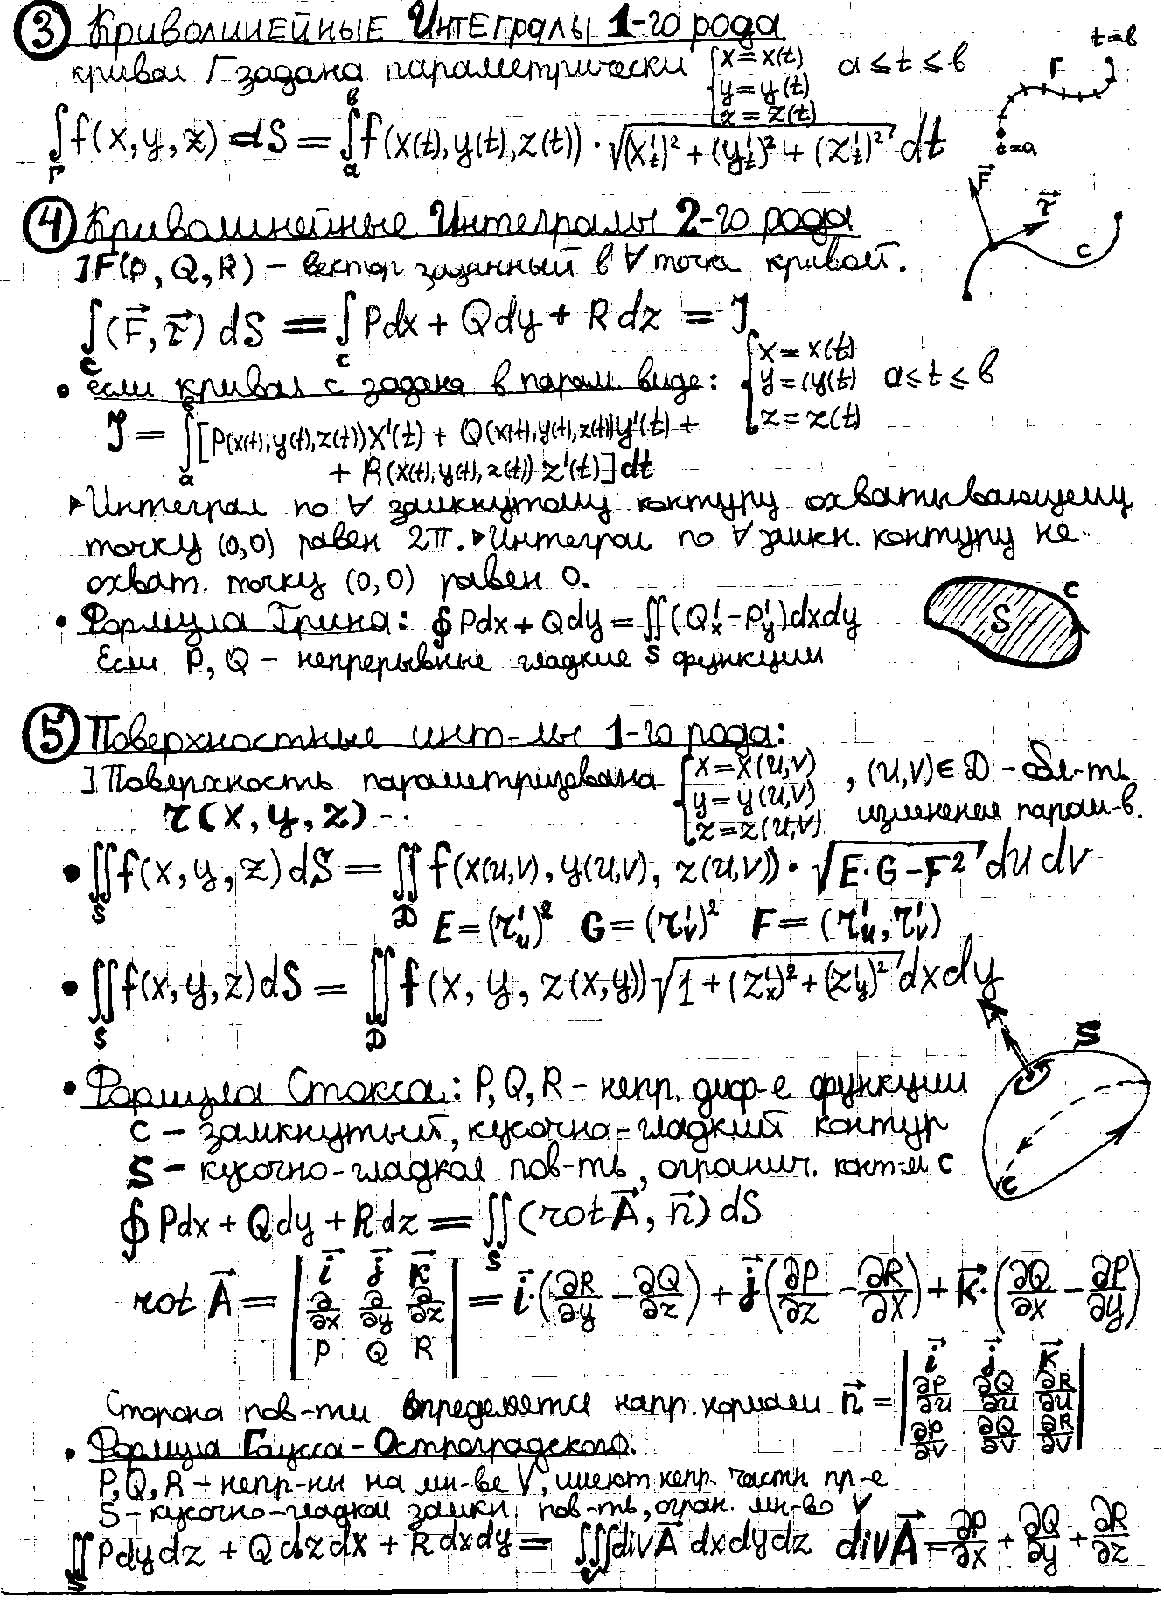 ③ Криволинейные Интегралы 1-го рода
кривая Г задана параметрически { x = x(t) y = y(t) z = z(t) a ≤ t ≤ b
t=b Г t=a
∫_Г f(x, y, z) dS = ∫_a^b f(x(t), y(t), z(t)) · √((x'_t)² + (y'_t)² + (z'_t)²) dt
④ Криволинейные Интегралы 2-го рода
F⃗ τ⃗ c
] F(P, Q, R) – вектор заданный в ∀ точке кривой.
∫_c (F⃗, τ⃗) dS = ∫_c Pdx + Qdy + Rdz = J
• если кривая c задана в парам. виде: { x = x(t) y = y(t) z = z(t) a ≤ t ≤ b
J = ∫_a^b [P(x(t), y(t), z(t)) x'(t) + Q(x(t), y(t), z(t)) y'(t) +
+ R(x(t), y(t), z(t)) z'(t)] dt
▸ Интеграл по ∀ замкнутому контуру охватывающему
точку (0,0) равен 2π. ▸ Интеграл по ∀ замкн. контуру не
охват. точку (0,0) равен 0.
• Формула Грина: ∮ Pdx + Qdy = ∬_S (Q'_x – P'_y) dxdy
S c
Если P, Q – непрерывные гладкие функции
⑤ Поверхностные инт-лы 1-го рода:
] Поверхность параметризована { x = x(u,v) y = y(u,v) z = z(u,v) , (u,v) ∈ D – обл-ть
изменения парам-в.
r(x, y, z) –
• ∬_S f(x, y, z) dS = ∬_D f(x(u,v), y(u,v), z(u,v)) · √(E·G – F²) du dv
E = (r'_u)² G = (r'_v)² F = (r'_u, r'_v)
• ∬_S f(x, y, z) dS = ∬_D f(x, y, z(x,y)) √(1 + (z'_x)² + (z'_y)²) dxdy
• Формула Стокса: P, Q, R – непр. диф-е функции
S c
c – замкнутый, кусочно-гладкий контур
S – кусочно-гладкая пов-ть, огранич. конт-м c
∮ Pdx + Qdy + Rdz = ∬_S (rot A⃗, n⃗) dS
rot A⃗ = | i⃗ j⃗ k⃗ ; ∂/∂x ∂/∂y ∂/∂z ; P Q R | = i⃗·(∂R/∂y – ∂Q/∂z) + j⃗(∂P/∂z – ∂R/∂x) + k⃗·(∂Q/∂x – ∂P/∂y)
Сторона пов-ти определяется напр. нормали n⃗ = | i⃗ j⃗ k⃗ ; ∂P/∂u ∂Q/∂u ∂R/∂u ; ∂P/∂v ∂Q/∂v ∂R/∂v |
• Формула Гаусса-Остроградского.
P, Q, R – непр-ны на мн-ве V, имеют непр. частн. пр-е
S – кусочно-гладкая замкн. пов-ть, огран. мн-во V
∬_S Pdydz + Qdzdx + Rdxdy = ∭_V div A⃗ dxdydz div A⃗ = ∂P/∂x + ∂Q/∂y + ∂R/∂z